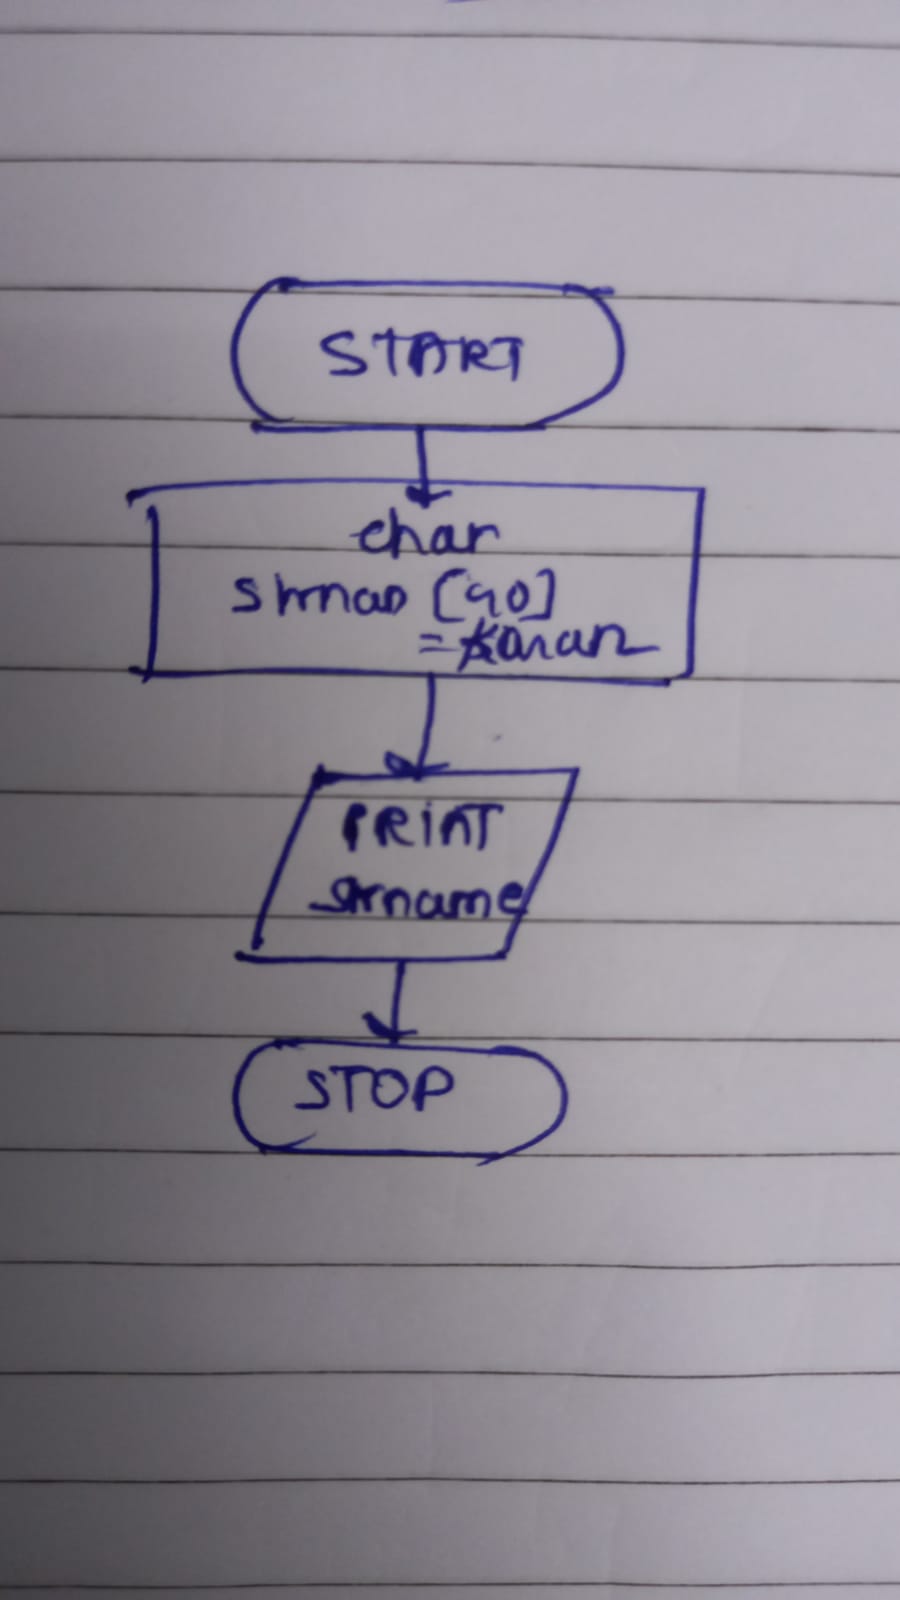 START
char
strnam [40]
= Karan
PRINT
strname
STOP